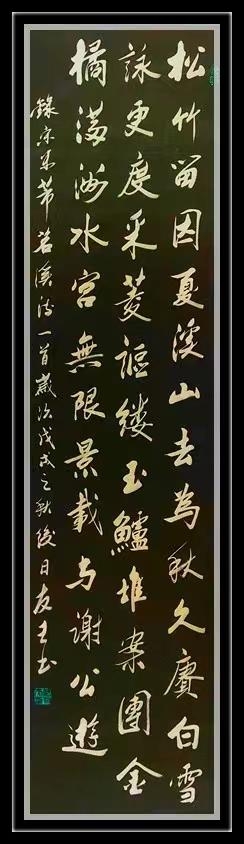 松竹留因夏溪山去為秋久賡白雪
詠更度采菱謳縷玉鱸堆案團金
橘滿洲水宮無限景載与謝公遊
錄宋米芾苕溪詩一首歲次戊戌之秋後日友王书